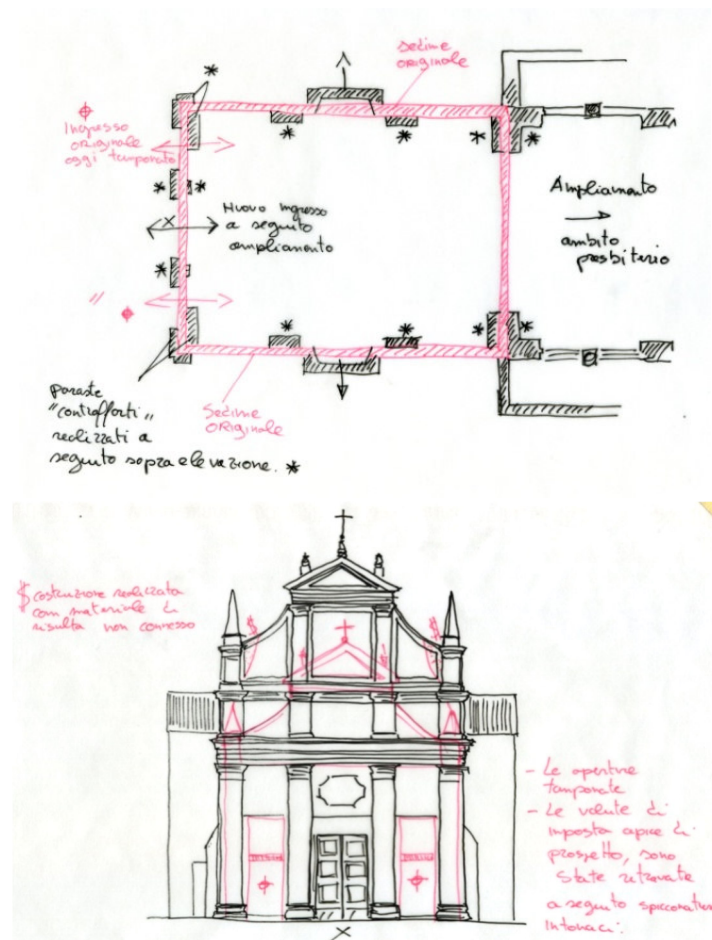 Sedime
originale
*
Ingresso
originale
oggi tamponato
* * * *
Ampliamento
ambito
presbiterio
* *
Nuovo ingresso
a seguito
ampliamento
X
*
"
* * * *
paraste
"contrafforti"
realizzati a
seguito sopraelevazione. *
Sedime
originale
$ costruzione realizzata
con materiale di
risulta non connesso
- Le aperture
tamponate
- Le volute di
imposta apice di
prospetto, sono
state ritrovate
a seguito spicconatura
intonaci.
X